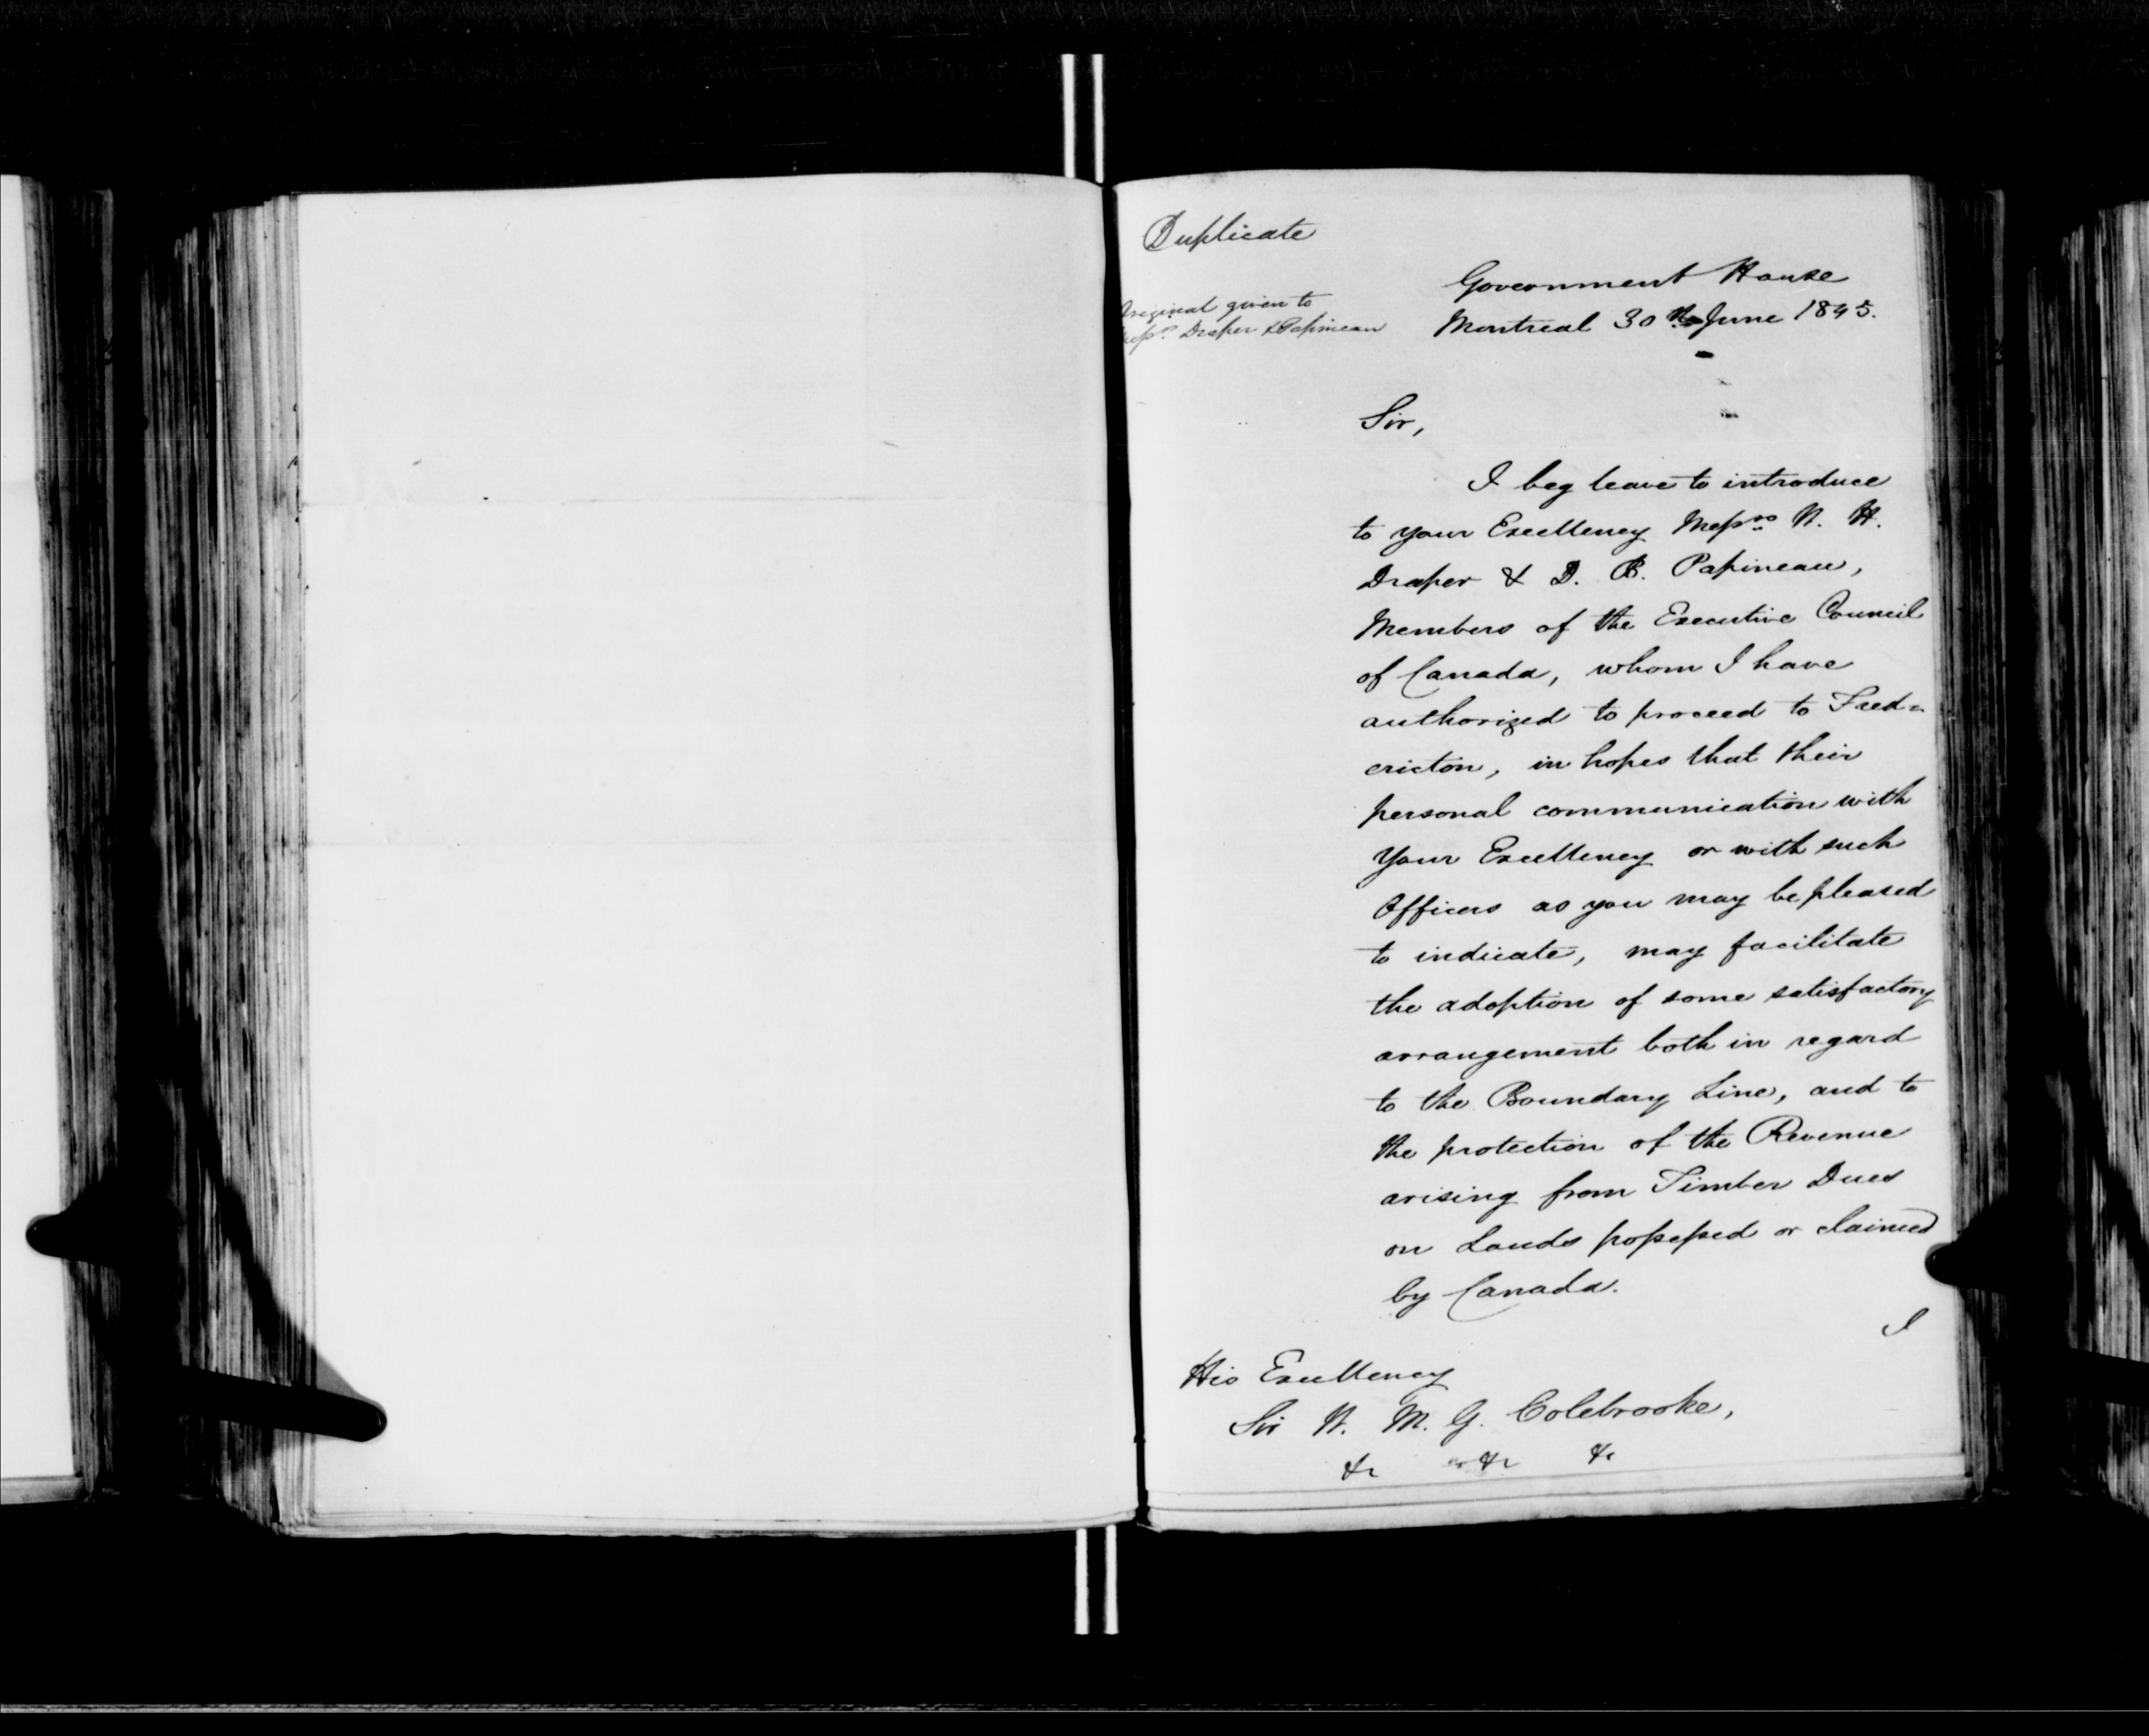 Duplicate
Original given to
Messrs Draper & Papineau
Government House
Montreal 30th June 1845.
Sir,
I beg leave to introduce
to your Excellency Messrs W. H.
Draper & D. B. Papineau,
Members of the Executive Council
of Canada, whom I have
authorized to proceed to Fred=
ericton, in hopes that their
personal communication with
Your Excellency or with such
Officers as you may be pleased
to indicate, may facilitate
the adoption of some satisfactory
arrangement both in regard
to the Boundary Line, and to
the protection of the Revenue
arising from Timber Dues
on Lands possessed or claimed
by Canada.
I
His Excellency
Sir W. M. G. Colebrooke,
&c &c &c